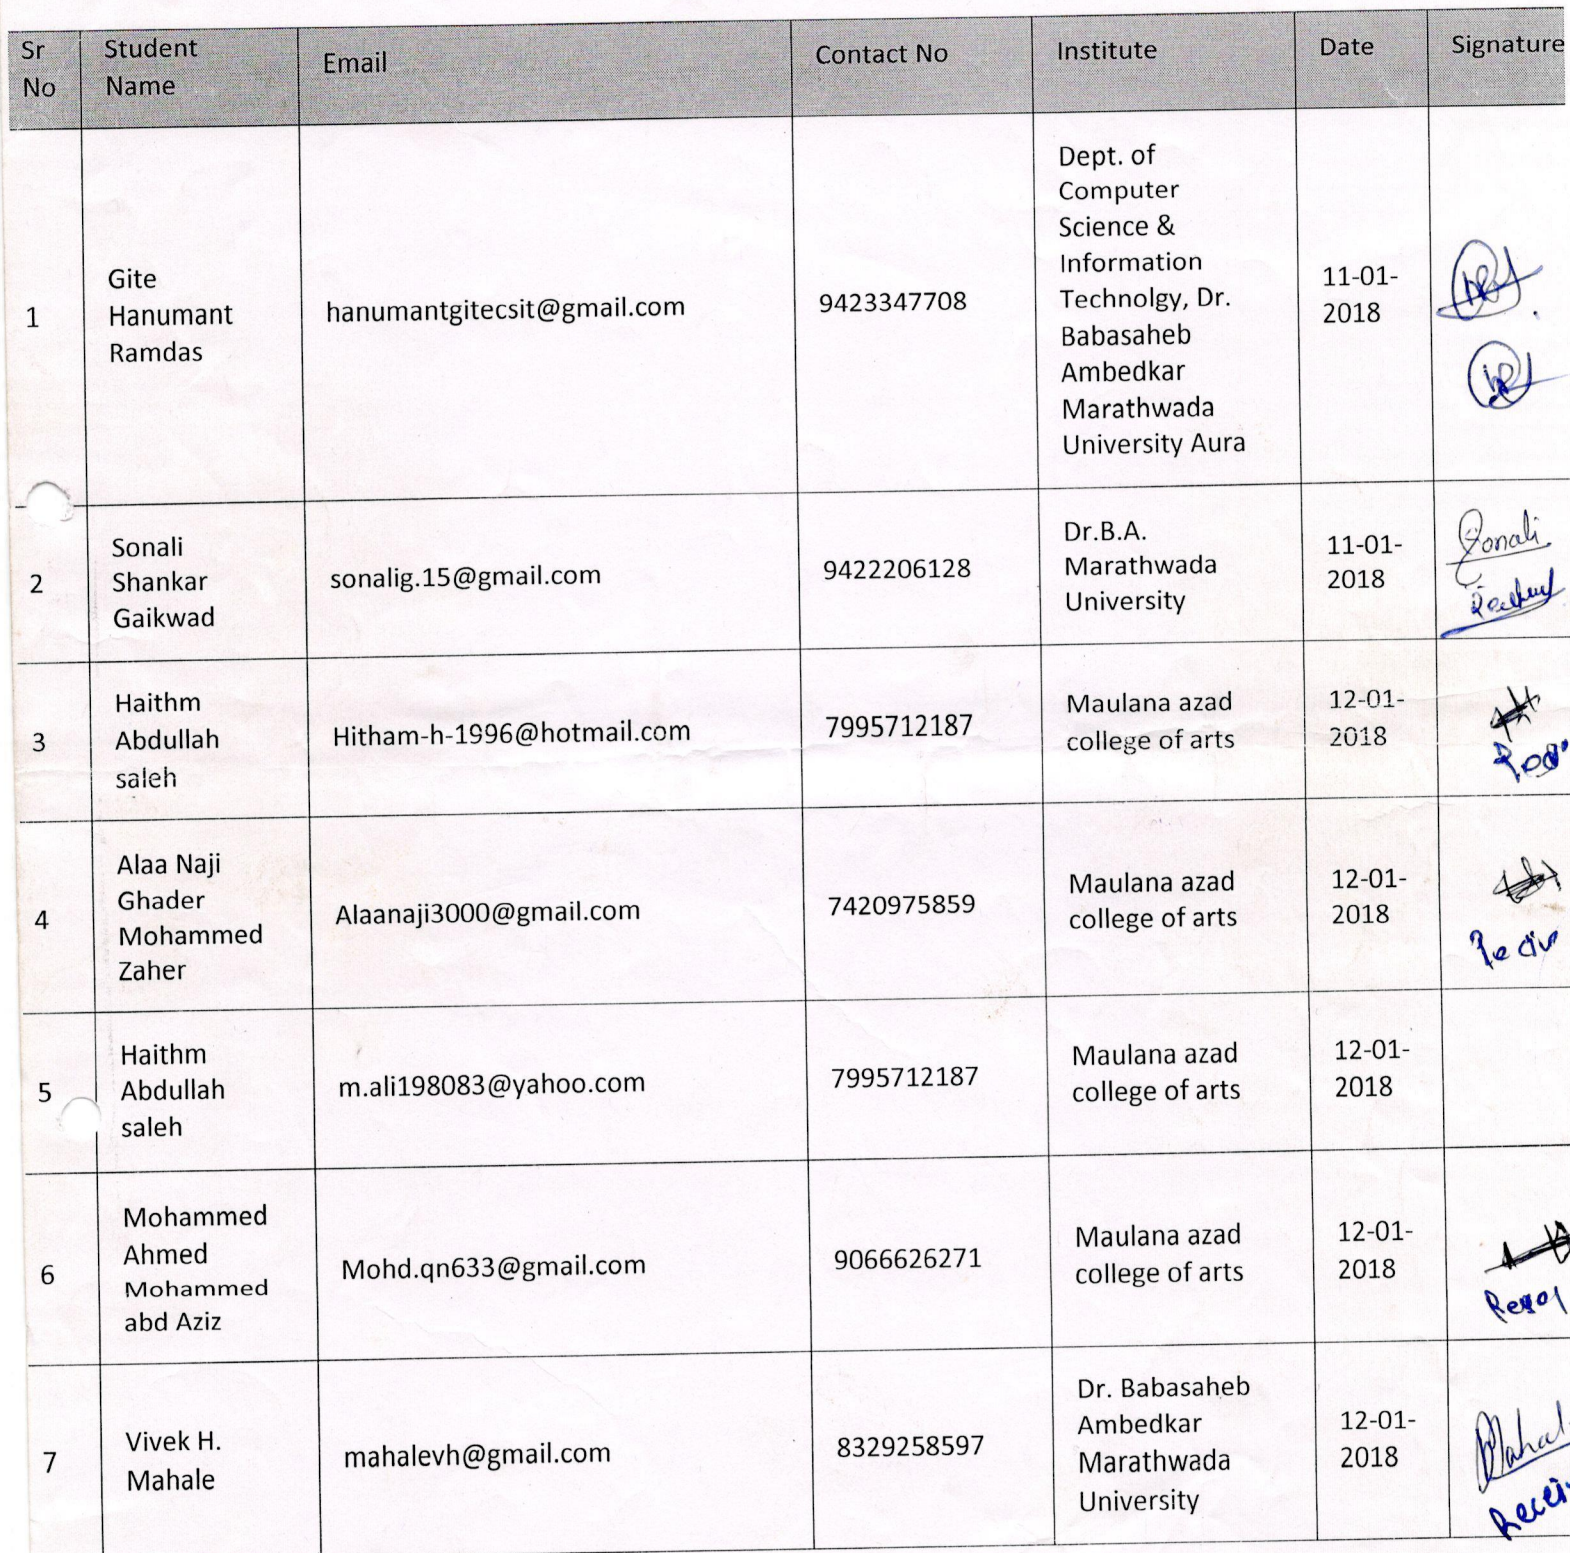 Sr No
Student Name
Email
Contact No
Institute
Date
Signature
1
Gite
Hanumant
Ramdas
hanumantgitecsit@gmail.com
9423347708
Dept. of
Computer
Science &
Information
Technolgy, Dr.
Babasaheb
Ambedkar
Marathwada
University Aura
11-01-
2018
2
Sonali
Shankar
Gaikwad
sonalig.15@gmail.com
9422206128
Dr.B.A.
Marathwada
University
11-01-
2018
Sonali
3
Haithm
Abdullah
saleh
Hitham-h-1996@hotmail.com
7995712187
Maulana azad
college of arts
12-01-
2018
4
Alaa Naji
Ghader
Mohammed
Zaher
Alaanaji3000@gmail.com
7420975859
Maulana azad
college of arts
12-01-
2018
5
Haithm
Abdullah
saleh
m.ali198083@yahoo.com
7995712187
Maulana azad
college of arts
12-01-
2018
6
Mohammed
Ahmed
Mohammed
abd Aziz
Mohd.qn633@gmail.com
9066626271
Maulana azad
college of arts
12-01-
2018
7
Vivek H.
Mahale
mahalevh@gmail.com
8329258597
Dr. Babasaheb
Ambedkar
Marathwada
University
12-01-
2018